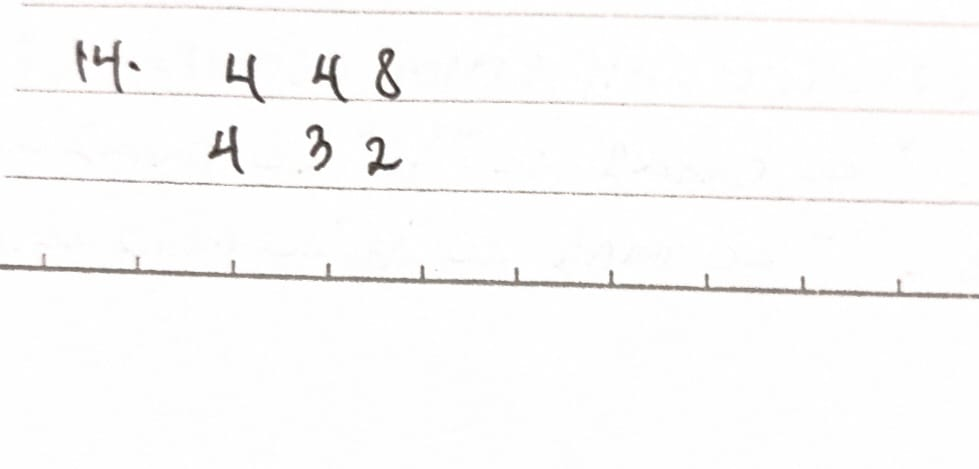 14. 4 4 8
4 3 2